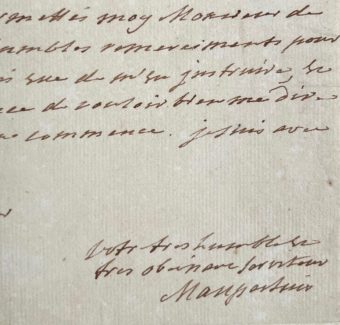 mettés moy Monsieur de
humbles remerciments pour
que de m'en instruire, &
de vouloir bien me dire
commence. je suis avec
votre tres humble &
tres obeissant serviteur
Maupertuis